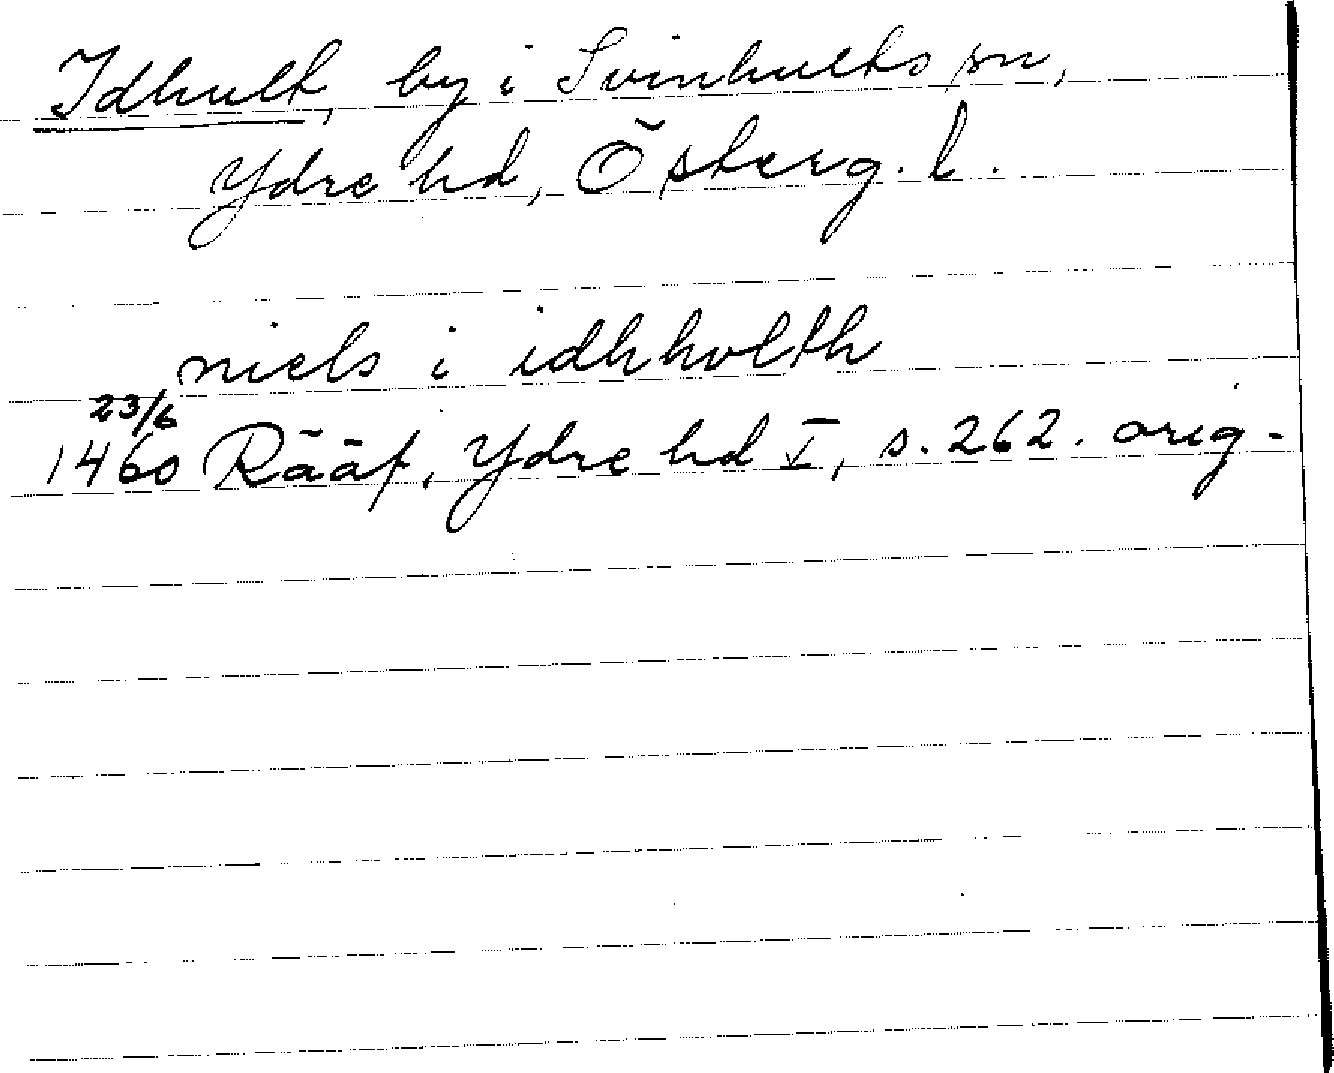 Idhult, by i Svinhults sn,
Ydre hd, Österg. l.
niels i idhholth
23/6
1460 Rääf, Ydre hd I, s. 262. orig.